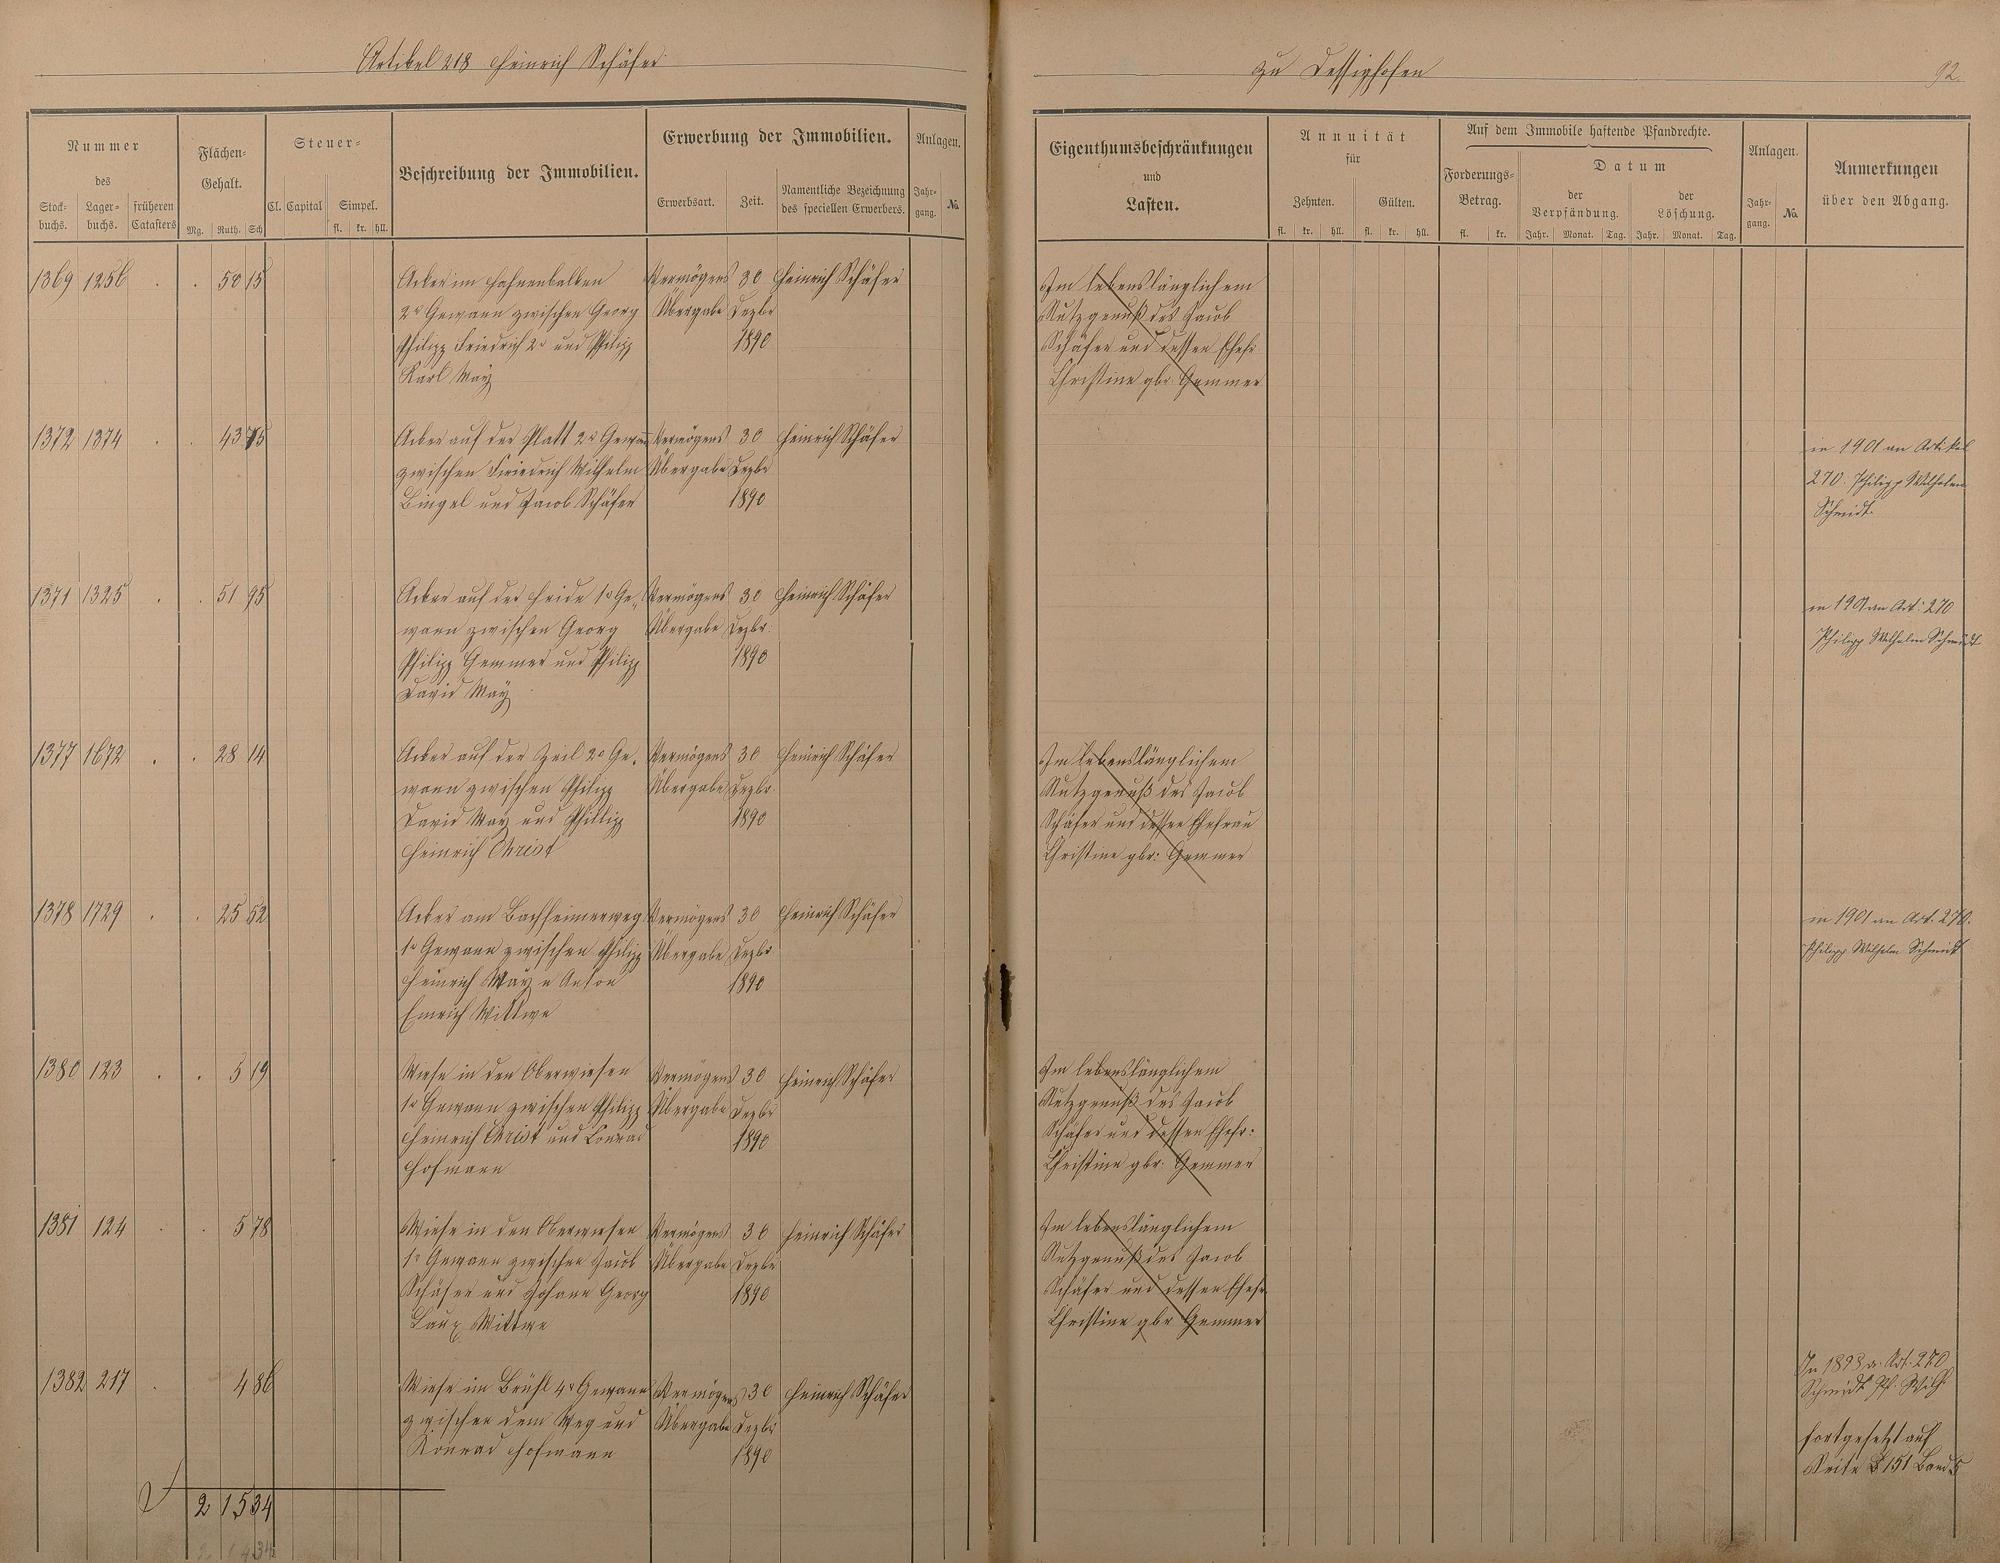 Artikel 218 Heinrich Schäfer
zu Dessighofen
92
Nummer
des
Stock-
buchs.
Lager-
buchs.
früheren
Catasters
Flächen-
Gehalt.
Mg. Ruth. Sch
Steuer-
Cl. Capital Simpel.
fl. kr. hll.
Beschreibung der Immobilien.
Erwerbung der Immobilien.
Erwerbsart. Zeit.
Namentliche Bezeichnung
des speciellen Erwerbers.
Anlagen.
Jahr-
gang.
No.
Eigenthumsbeschränkungen
und
Lasten.
Annuität
für
Zehnten. Gülten.
fl. kr. hll. fl. kr. hll.
Auf dem Immobile haftende Pfandrechte.
Forderungs-
Betrag.
fl. kr.
Datum
der
Verpfändung.
der
Löschung.
Jahr. Monat. Tag. Jahr. Monat. Tag.
Anlagen.
Jahr-
gang.
No.
Anmerkungen
über den Abgang.
1369 1256 . . 50 15 Acker im Hahnenbalken Vermögens 30 Heinrich Schäfer Im lebenslänglichem
2r Gewann zwischen Georg Übergabe Dezbr Nutzgenuß des Jacob
Philipp Friedrich 2r und Philipp 1890 Schäfer und dessen Ehefr.
Karl May Christine gbr. Gemmer
1372 1374 . . 43 75 Acker auf der Platt 2r Gewann Vermögens 30 Heinrich Schäfer in 1901 an Artikel
zwischen Friedrich Wilhelm Übergabe Dezbr 270. Philipp Wilhelm
Bingel und Jacob Schäfer 1890 Schmidt.
1371 1325 . . 51 95 Acker auf der Heide 1r Ge- Vermögens 30 Heinrich Schäfer in 1901 an Art: 270
wann zwischen Georg Übergabe Dezbr: Philipp Wilhelm Schmidt
Philipp Gemmer und Philipp 1890
David May
1377 1672 . . 28 14 Acker auf der Zeil 2r Ge- Vermögens 30 Heinrich Schäfer Im lebenslänglichem
wann zwischen Philipp Übergabe Dezbr. Nutzgenuß des Jacob
David May und Philipp 1890 Schäfer und dessen Ehefrau
Heinrich Christ Christine gbr: Gemmer
1378 1729 . . 25 52 Acker am Bachheimerweg Vermögens 30 Heinrich Schäfer in 1901 an Art. 270.
1r Gewann zwischen Philipp Übergabe Dezbr Philipp Wilhelm Schmidt
Heinrich May u Anton 1890
Emrich Wittwe
1380 123 . . 5 19 Wiese in den Oberwiesen Vermögens 30 Heinrich Schäfer Im lebenslänglichem
1r Gewann zwischen Philipp Übergabe Dezbr Nutzgenuß des Jacob
Heinrich Christ und Conrad 1890 Schäfer und dessen Ehefr:
Hofmann Christine gbr. Gemmer
1381 124 . . 5 78 Wiese in den Oberwiesen Vermögens 30 Heinrich Schäfer Im lebenslänglichem
1r Gewann zwischen Jacob Übergabe Dezbr Nutzgenuß des Jacob
Schäfer und Johann Georg 1890 Schäfer und dessen Ehefr
Laux Wittwe Christine gbr. Gemmer
1382 217 . 4 86 Wiese im Brühl 4r Gewann Vermögens 30 Heinrich Schäfer In 1893 a. Art. 270
zwischen dem Weg und Übergabe Dezbr Schmidt Ph. Wilh.
Konrad Hofmann 1890 fortgesetzt auf
Seite 151 Band 5
2 15 34